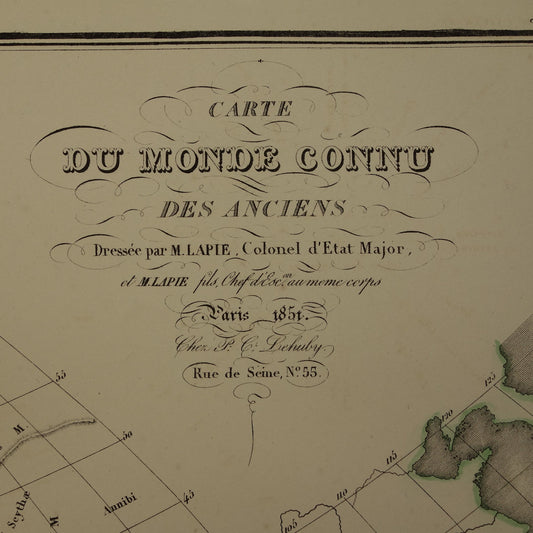 CARTE
DU MONDE CONNU
DES ANCIENS
Dressée par M. LAPIE, Colonel d'Etat Major,
et M. LAPIE fils, Chef d'Esc.on au meme corps
Paris 1851.
Chez P. C. Lehuby.
Rue de Seine, No. 55.
55
M.
50
Scythæ
M.
Annibi
45
125
120
115
110
105